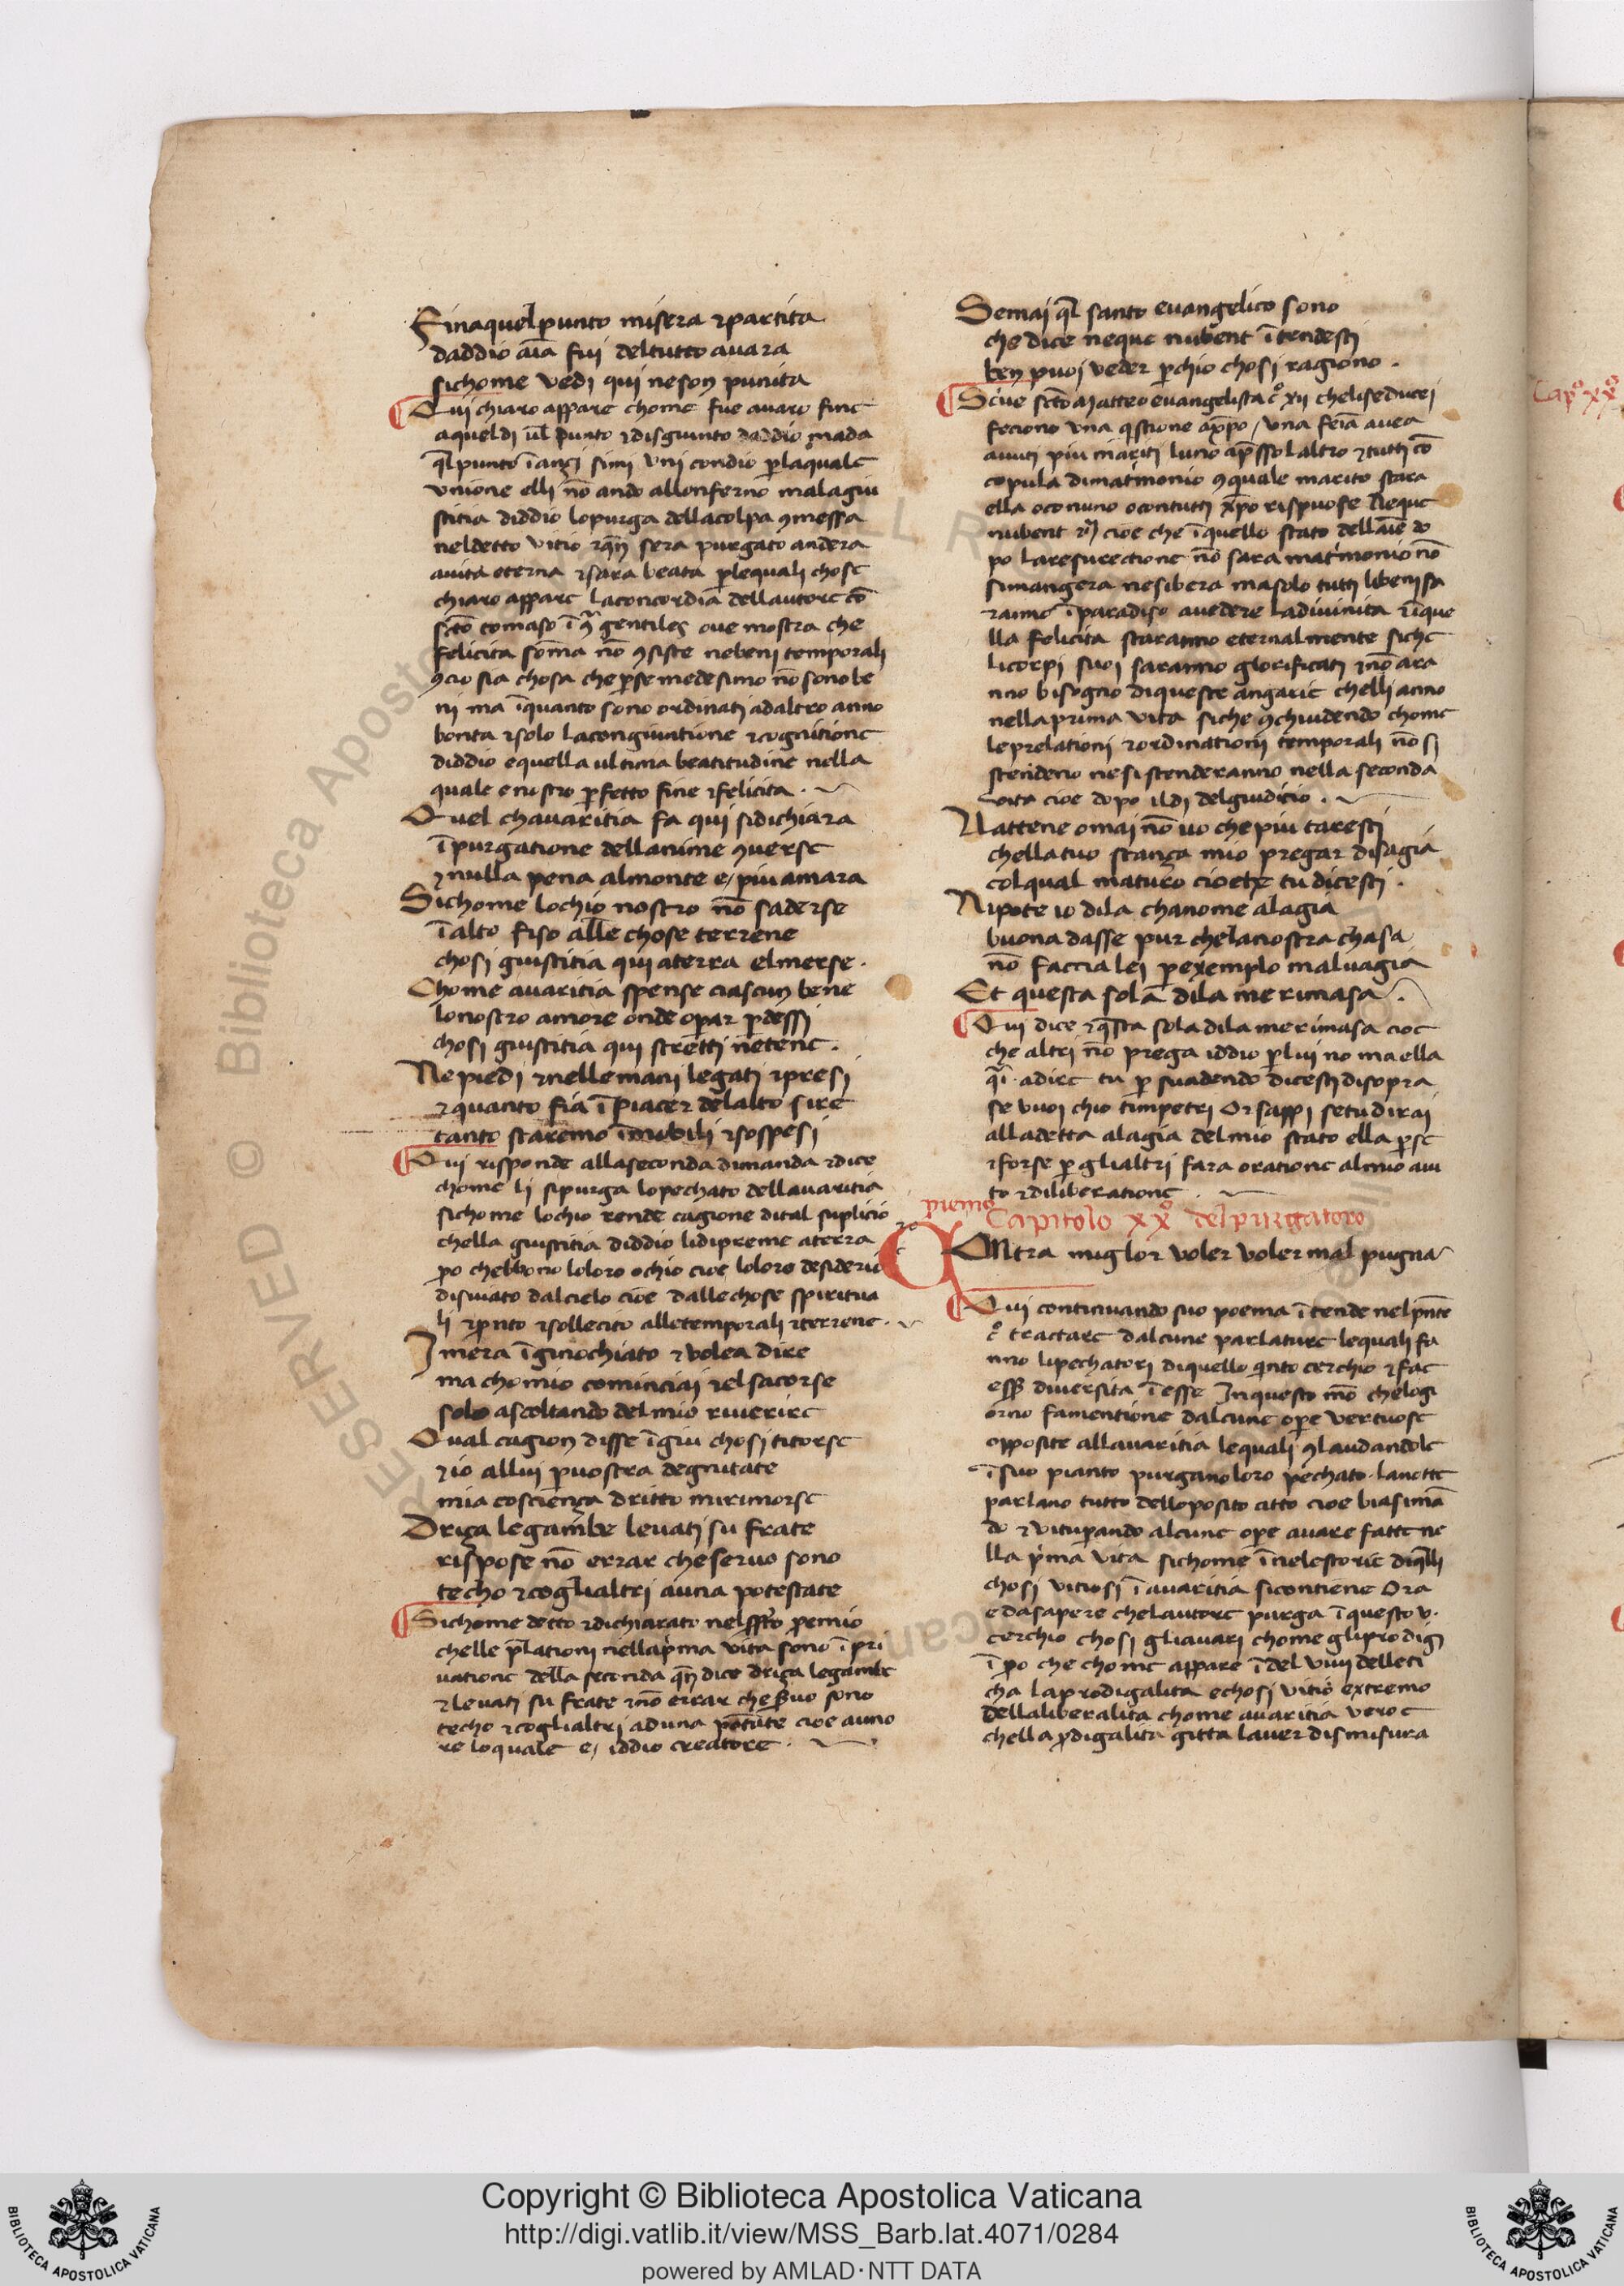 Finaquel punto misera ⁊ partita
daddio aĩa fui deltutto auara
sichome vedj qui neson punita
Qui chiaro appare chome fue auaro fine
aqueldi ul̃ punto ⁊disgiunto daddio mada
q̃l punto ĩanzj simi vni condio p̱laquale
vnione elli nõ ando allonferno malagiu
stitia diddio lopurga dellacolpa ꝯmessa
neldetto vitio ⁊qñ sera purgato andera
auita eterna ⁊sara beata p̱lequali chose
chiaro appare laconcordia dellautore cõ
sc̃o tomaso ĩ gentiles oue mostra che
felicita som̃a nõ ꝯsiste nebeni temporali
ꝯcio sia chosa che p̱se medesimo nõ sono be
ni ma ĩquanto sono ordinatj adaltro anno
bonta ⁊solo lacongiuntione ⁊cognitione
diddio equella ultima beatitudine nella
quale enostro p̱fetto fine ⁊felicita .
Quel chauaritia fa qui sidichiara
ĩpurgatione dellanime ꝯuerse
⁊nulla pena almonte e, piu amara
Sichome lochio nostro nõ saderse
ĩalto fiso alle chose terrene
chosj giustitia qui aterra elmerse .
Chome auaritia spense ciascun bene
lonostro amore onde operar p̱dessj
chosj giustitia qui strettj netene .
Ne piedj ⁊nellemani legatj ⁊presj
⁊quanto fia ĩpiacer delalto sire
tanto staremo ĩmobili ⁊sospesj
Qui risponde allaseconda dimanda ⁊dice
chome li sipurga lopechato dellauaritia
sichome lochio rende cagione dital suplicio
chella giustitia diddio lidipreme aterra
p̱o chebbono loloro ochio cioe loloro desiderio
disuiato dalcielo cioe dallechose spiritua
li ⁊p̱nto ⁊sollecito alletemporali ⁊terrene .
Imera ĩginochiato ⁊ volea dire
ma chomio cominciaj ⁊elsacorse
solo ascoltando delmio riuerire
Qual cagion disse ĩgiu chosj titorse
⁊io allui p̱ vostra degnitate
mia coscienza dritto mirimorse
Driza legambe leuatj su frate
rispose nõ errar cheseruo sono
techo ⁊coglialtrj auna potestate
Sichome detto ⁊dichiarato p̱emio
chelle p̃lationi nellap̱ma vita sono ĩ pri
uatione della seconda qñ dice driza legambe
⁊leuatj su frate ⁊nõ errar che suo sono
techo ⁊coglialtrj aduna potẽtate cioe auno
re loquale e, iddio creatore .
Semaj q̃l santo euangelico sono
che dice neque nubent ĩtendestj
ben puoj veder p̱chio chosj ragiono .
Scriue sc̃o Matteo euangelista c̊ xij cheliseducej
feciono vna q̃stione ax̃po, vna feĩa auea
auuti piu mariti luno ap̃sso laltro ⁊tuttj cõ
copula dimatrimonio ꝯquale marito stara
ella oconuno ocontuttj x̃po rispuose Neque
nubent cioe che ĩquello stato dellaĩe do
po laresurectione nõ sara matrimonio nõ
simangera nesibera masolo tuttj libeni sa
ranno ĩparadiso auedere ladiuinita ⁊ĩque
lla felicita staranno eternalmente siche
licorpj suoj saranno glorificatj ⁊nõ ara
nno bisogno diqueste angarie chellj anno
nella prima vita siche ꝯchiudendo chome
leprelationi ⁊ordinationi temporali nõ sj
stendeno nesistenderanno nella seconda
vita cioe dopo ildj delgiudicio .
Uattene omai nõ uo che piu tarestj
chellatuo stanza mio pregar disagia
colqual maturo cioche tu dicestj .
Nipote io dila chanome alagia
buona dasse pur chelanostra chasa
nõ faccia lej p̱exemplo maluagia
Et questa sola dila merimasa .
Qui dice ⁊q̃sta sola dila merimasa cioe
che altri nõ prega iddio p̱lui no ma ella
q̃i adire tu p̱suadendo dicestj disopra
se vuoi chio timpetrj Or sappj setu diraj
alladetta alagia delmio stato ella p̱se
⁊forse p̱ glialtri fara oratione almio aiu
to ⁊diliberatione .
premo Capitolo xx̊ del purgatoro
COntra miglor voler voler mal pugna
Qui continuando suo poema ĩtende nelp̃nte
c̊ tractare dalcune parlature lequali fa
nno lipechatorj diquello q̃nto cerchio ⁊fae
diuersita ĩesse Inquesto mõ chelogi
orno famentione dalcune op̱e vertuose
opposite allauaritia lequali ꝯlaudandole
ĩsuo pianto purgano loro pechato . lanotte
parlano tutto dellopposito ditto cioe biasimã
do ⁊vitup̱ando alcune op̱e auare fatte ne
lla p̱ma vita sichome ĩnelestorie diq̃lli
chosj vitiosi ĩauaritia sicontiene Ora
edasapere chelautore purga ĩquesto v .
cerchio chosj gliauarj chome gliprodigj
ĩp̱o che chome appare ĩdel uiiij delleti
cha laprodigalita echosj vitio extremo
dellaliberalita chome auaritia vero e
chella p̱digalita gitta lauer dismisura
Cap̊ xx̊
Copyright © Biblioteca Apostolica Vaticana
http://digi.vatlib.it/view/MSS_Barb.lat.4071/0284
powered by AMLAD·NTT DATA
BIBLIOTECA APOSTOLICA VATICANA
BIBLIOTECA APOSTOLICA VATICANA